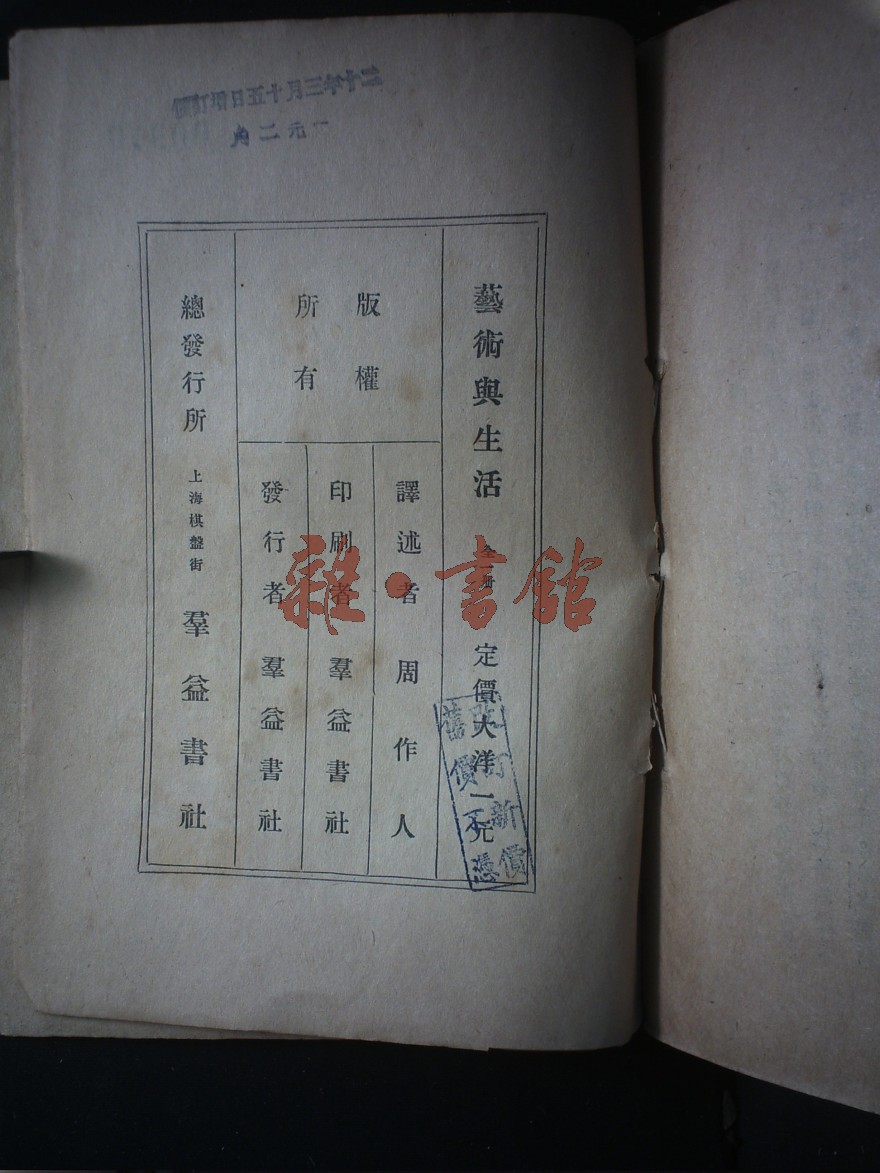 二十年三月十五日增訂價
一元二角
藝術與生活 全一册 定價大洋一元
改訂新價
舊價不憑
版權
所有
譯述者 周作人
印刷者 羣益書社
發行者 羣益書社
總發行所 上海棋盤街 羣益書社
雜·書館